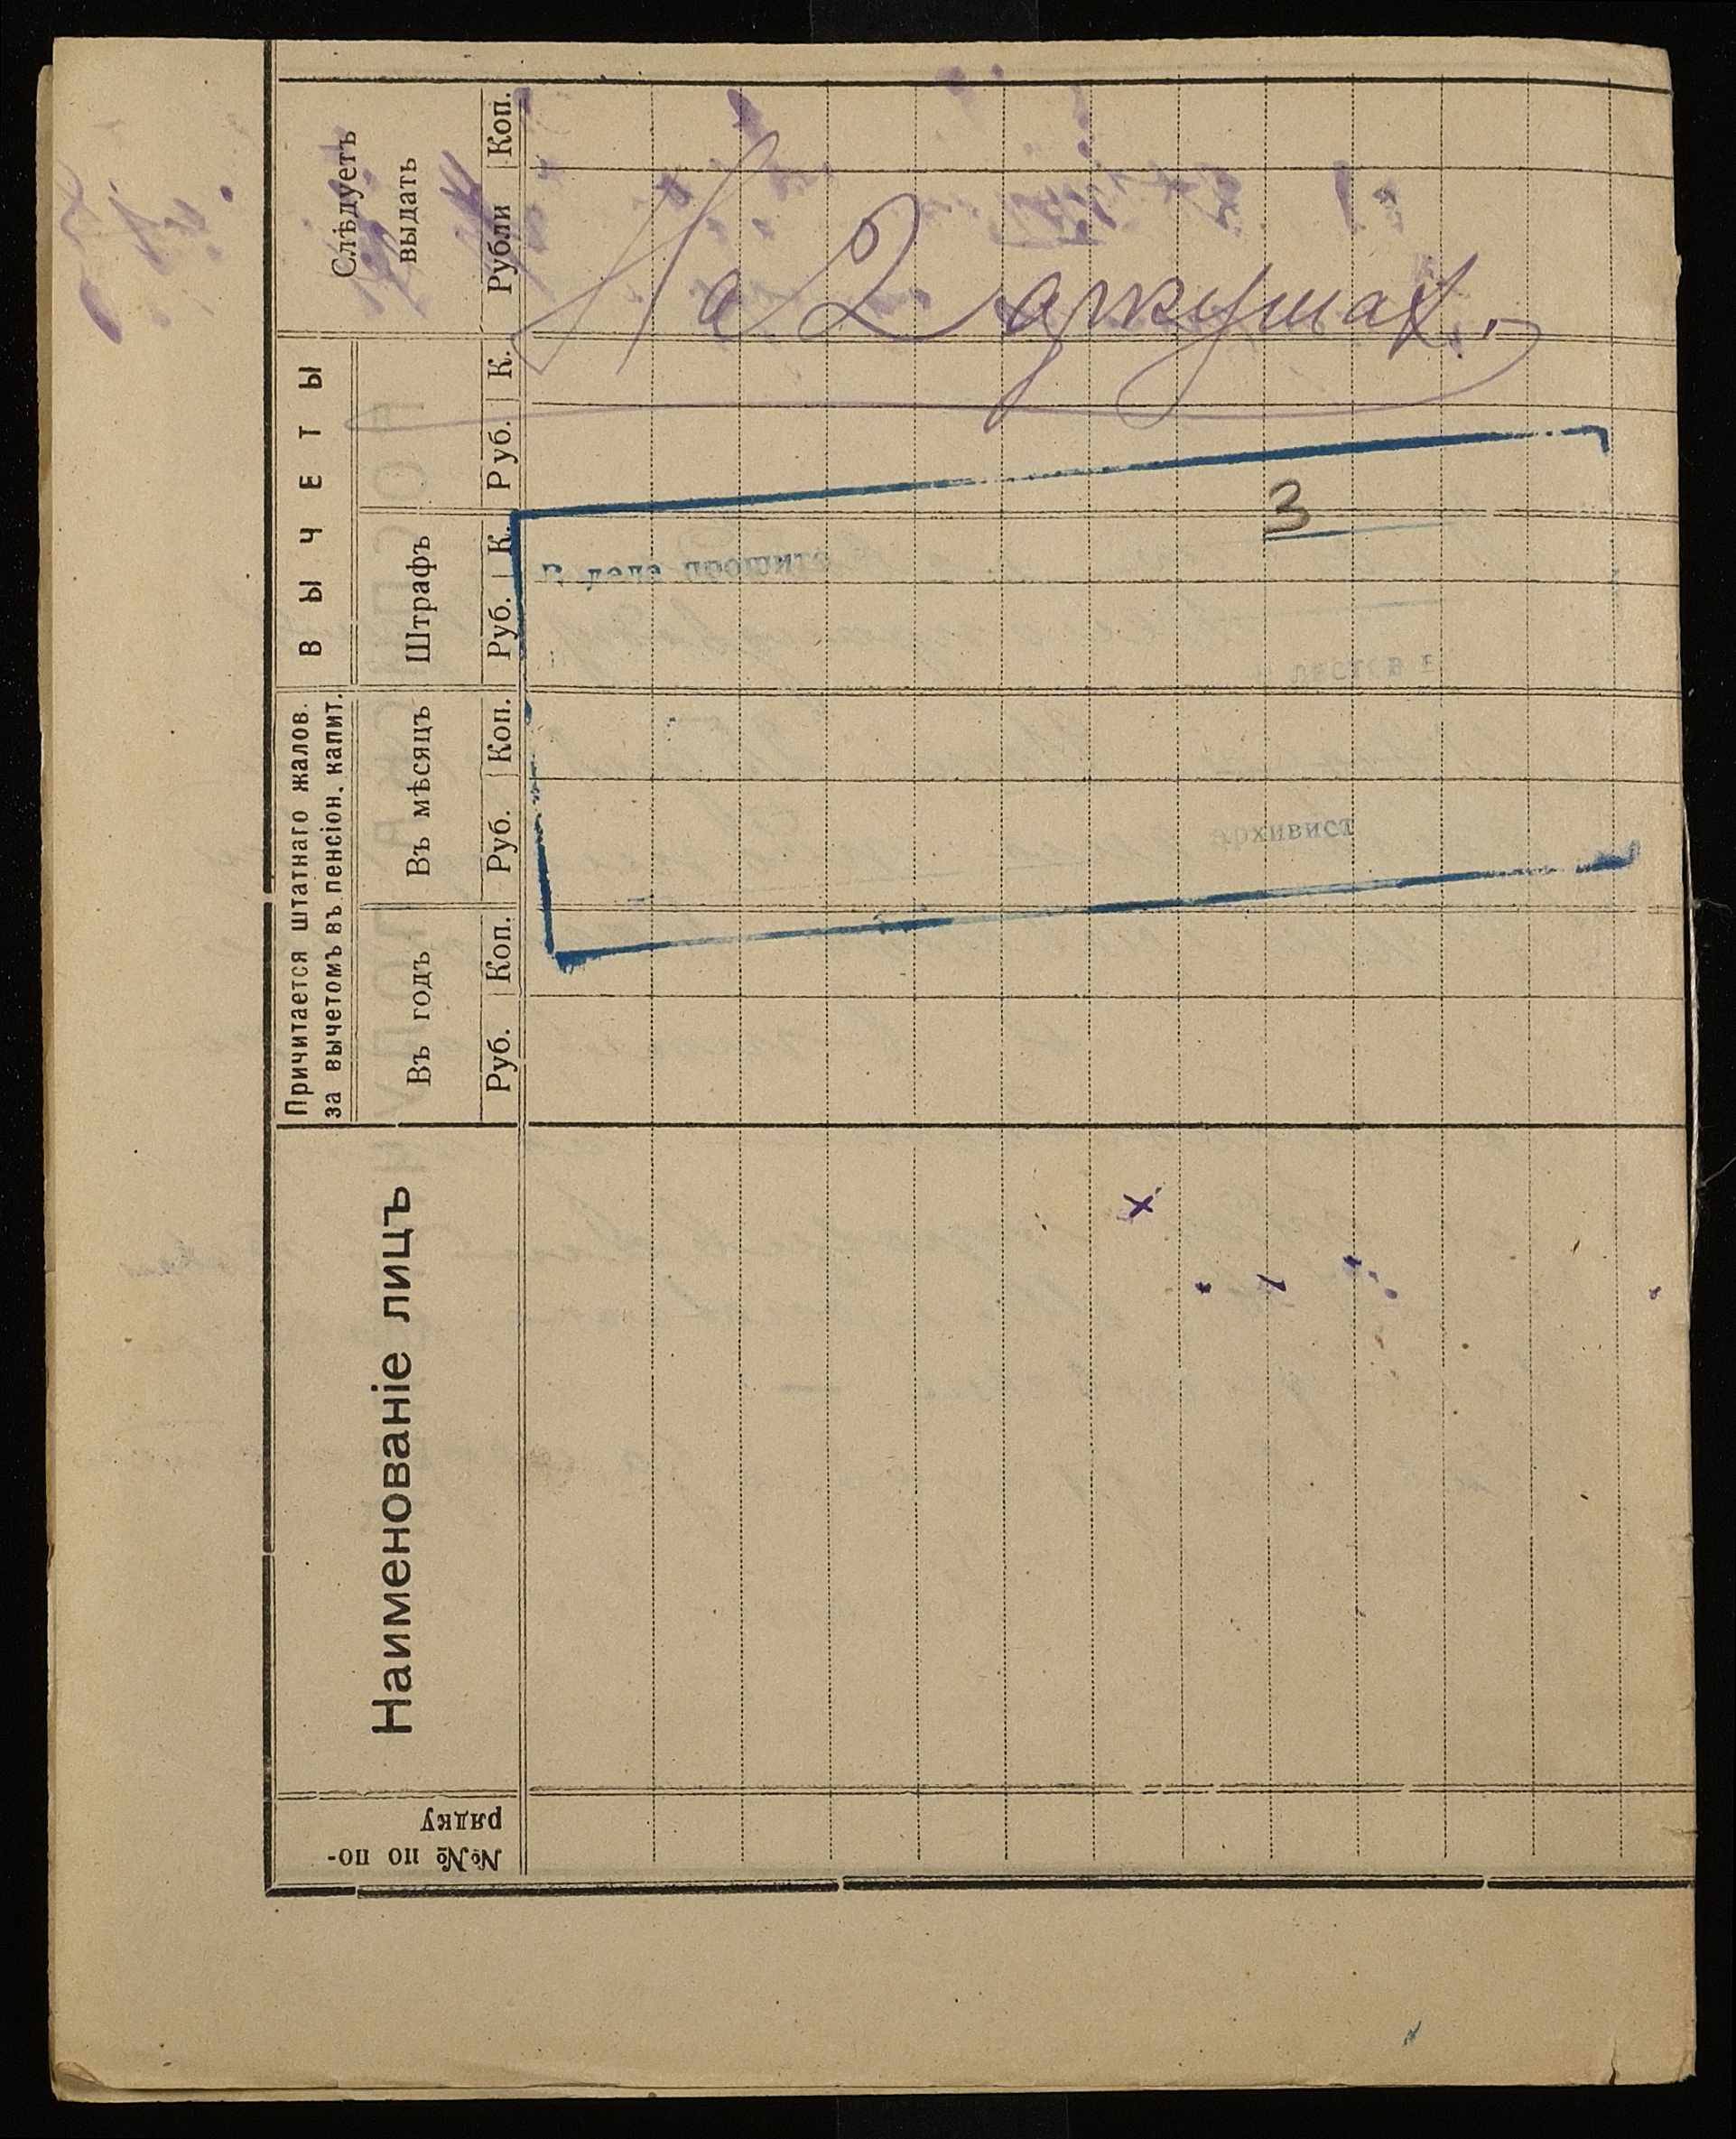 Слѣдуетъ
выдать
Рубли Коп.
ВЫЧЕТЫ
Руб. К.
Штрафъ
Руб. К.
Причитается штатнаго жалов.
за вычетомъ въ пенсіон. капит.
Въ мѣсяцъ
Руб. Коп.
Въ годъ
Руб. Коп.
Наименованіе лицъ
№№ по по-
рядку
На 2 аркушах.
3
деле прошито
листов
архивист